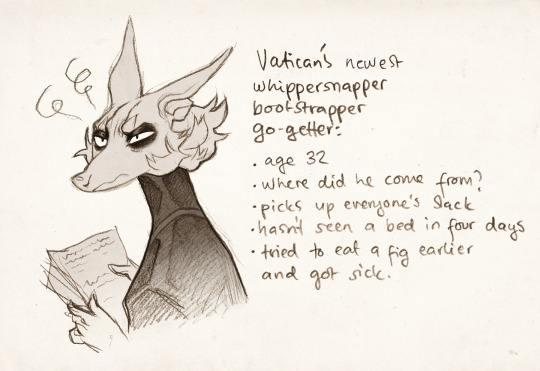 Vatican's newest
whippersnapper
bootstrapper
go-getter:
· age 32
· where did he come from?
· picks up everyone's slack
· hasn't seen a bed in four days
· tried to eat a fig earlier
and got sick.